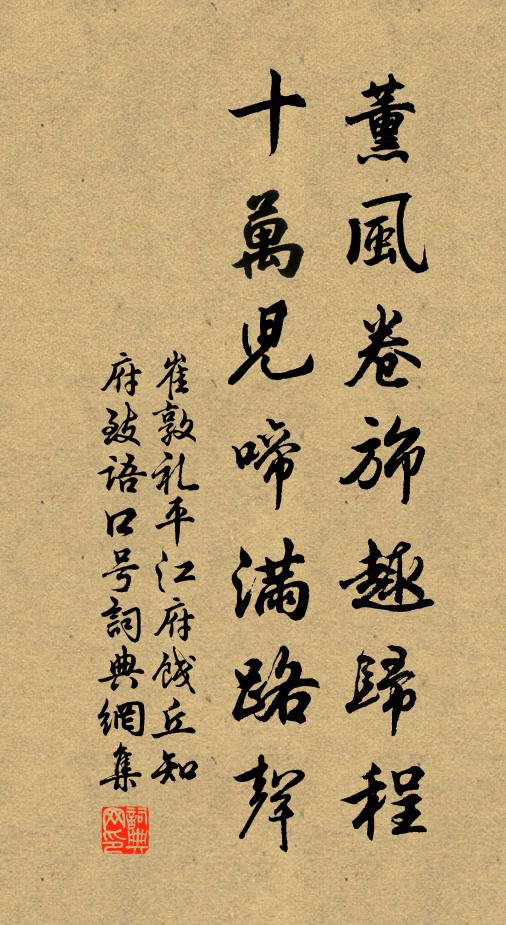 薰風卷旆趣歸程
十萬兒啼滿路聲
崔敦礼平江府餞丘知
府致语口号詞典網集
詞典网印